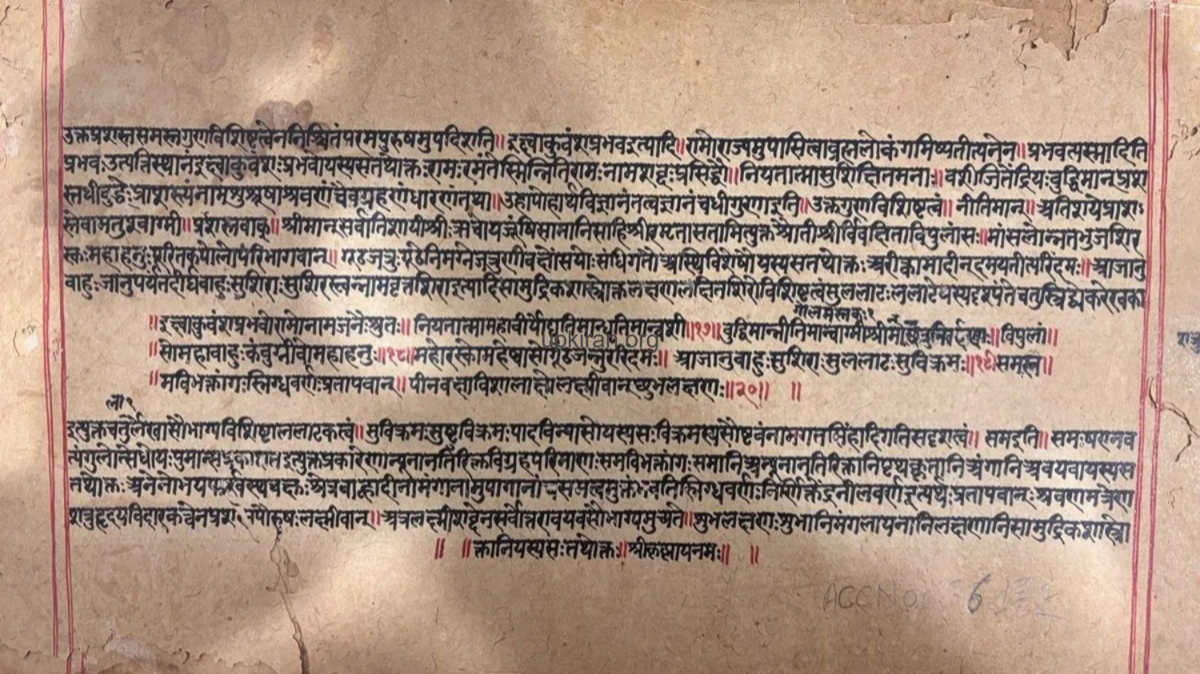 उक्तप्रशस्तसमस्तगुणविशिष्टत्वेननिश्चितंपरमपुरुषमुपदिशति॥ इक्ष्वाकुवंशप्रभवइत्यादि॥ रामोराज्यमुपासित्वाब्रह्मलोकंगमिष्यतीत्यनेन॥ प्रभवत्यस्मादिति
प्रभवः उत्पत्तिस्थानंइक्ष्वाकुवंशः प्रभवोयस्यसतथोक्तः रामः रमंतेस्मिन्नितिरामः नामशब्दः प्रसिद्धौ॥ नियतात्मासुशिक्षितमनाः॥ वशीजितेंद्रियः बुद्धिमान्प्रश
स्तधीः बुद्धेः प्राशस्त्यंनामशुश्रूषाश्रवणंचैवग्रहणंधारणंतथा॥ उहापोहार्थविज्ञानंतत्वज्ञानंचधीगुणाइति॥ उक्तगुणविशिष्टत्वं॥ नीतिमान्॥ अतिशयेप्राशः
स्तेवामतुश्वाग्मी॥ प्रशस्तवाक्॥ श्रीमान्सर्वातिशायीश्रीः ऋचायजूंषिसामानिसाहिश्री सतामित्युक्त विवक्षिताविपुलांसः॥ मांसलोन्नतभुजशिर
स्कः महाहनुः पूरितकपोलोपरिभागवान्॥ गूढजत्रुः अस्थिविशेषोयस्यसतथोक्तः अरीन्कामादीन्दमयतीत्यरिंदमः॥ आजानु
बाहुः जानुपर्यंतदीर्घबाहुः सुशिराः सुशिरस्त्वन्नामवृत्तशिराइत्यादिसामुद्रिकशास्त्रोक्तलक्षणलक्षितशिरोविशिष्टत्वंसुललाटः ललाटेयस्यदृश्यंते
गोलमस्तकः१
॥ इक्ष्वाकुवंशप्रभवोरामोनामजनैःश्रुतः॥ नियतात्मामहावीर्योद्युतिमान्धृतिमान्वशी॥१७॥ बुद्धिमान्नीतिमान्वाग्मीश्रीमाञ्छत्रुनिबर्हणः॥ विपुलां॥
॥ सोमहाबाहुः कंबुग्रीवोमहाहनुः॥१८॥ महोरस्कोमहेष्वासोगूढजत्रुररिंदमः॥ आजानुबाहुः सुशिराः सुललाटः सुविक्रमः॥१९॥ समस्त॥
॥ मविभक्तांगः स्निग्धवर्णः प्रतापवान्॥ पीनवक्षाविशालाक्षोलक्ष्मीवान्शुभलक्षणः॥२०॥ ॥
ला१
इत्युक्तचतुर्लेखासौभाग्यविशिष्टाललाटकत्वं॥ सुविक्रमः सुष्टुविक्रमः पादविन्यासोयस्यसः विक्रमस्यसौष्टवंनामगजसिंहादिगतिसदृशत्वं॥ समइति॥ समः षण्नव
त्यंगुलोत्सेधोयः इत्युक्तप्रकारेणान्यूनानतिरिक्तविग्रहपरिमाणः समविभक्तांगः समानिअन्यूनानतिरिक्तानिपृथग्भूतानिअंगानिअवयवायस्यस
तथोक्तः स्निग्धवर्णः इंद्रनीलवर्णइत्यर्थः प्रतापवान्
शत्रुहृदयविदारकत्वेनप्रश पौरुषः लक्ष्मीवान्॥ अत्रलक्ष्मीशब्देनसर्वोत्तरावयवसौभाग्यमुच्यते॥ शुभलक्षणः शुभानिमंगलायनानिलक्षणानिसामुद्रिकशास्त्रो
॥ ॥ क्तानियस्यसः तथोक्तः॥ श्रीकृष्णायनमः॥ ॥